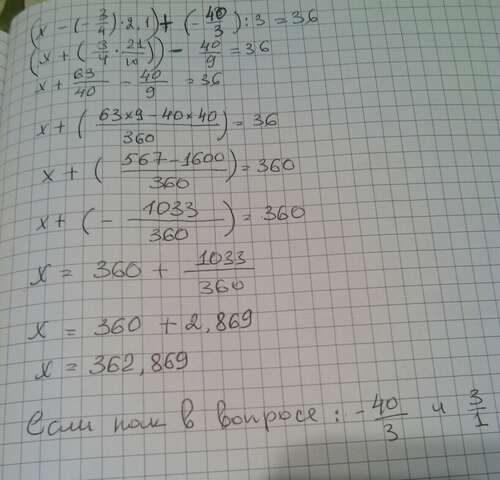 (x - (-3/4) · 2,1) + (-40/3) : 3 = 36
(x + (3/4 · 21/10)) - 40/9 = 36
x + 63/40 - 40/9 = 36
x + (63×9 - 40×40/360) = 36
x + (567 - 1600/360) = 360
x + (- 1033/360) = 360
x = 360 + 1033/360
x = 360 + 2,869
x = 362,869
Если пол в вопросе : - 40/3 и 3/1